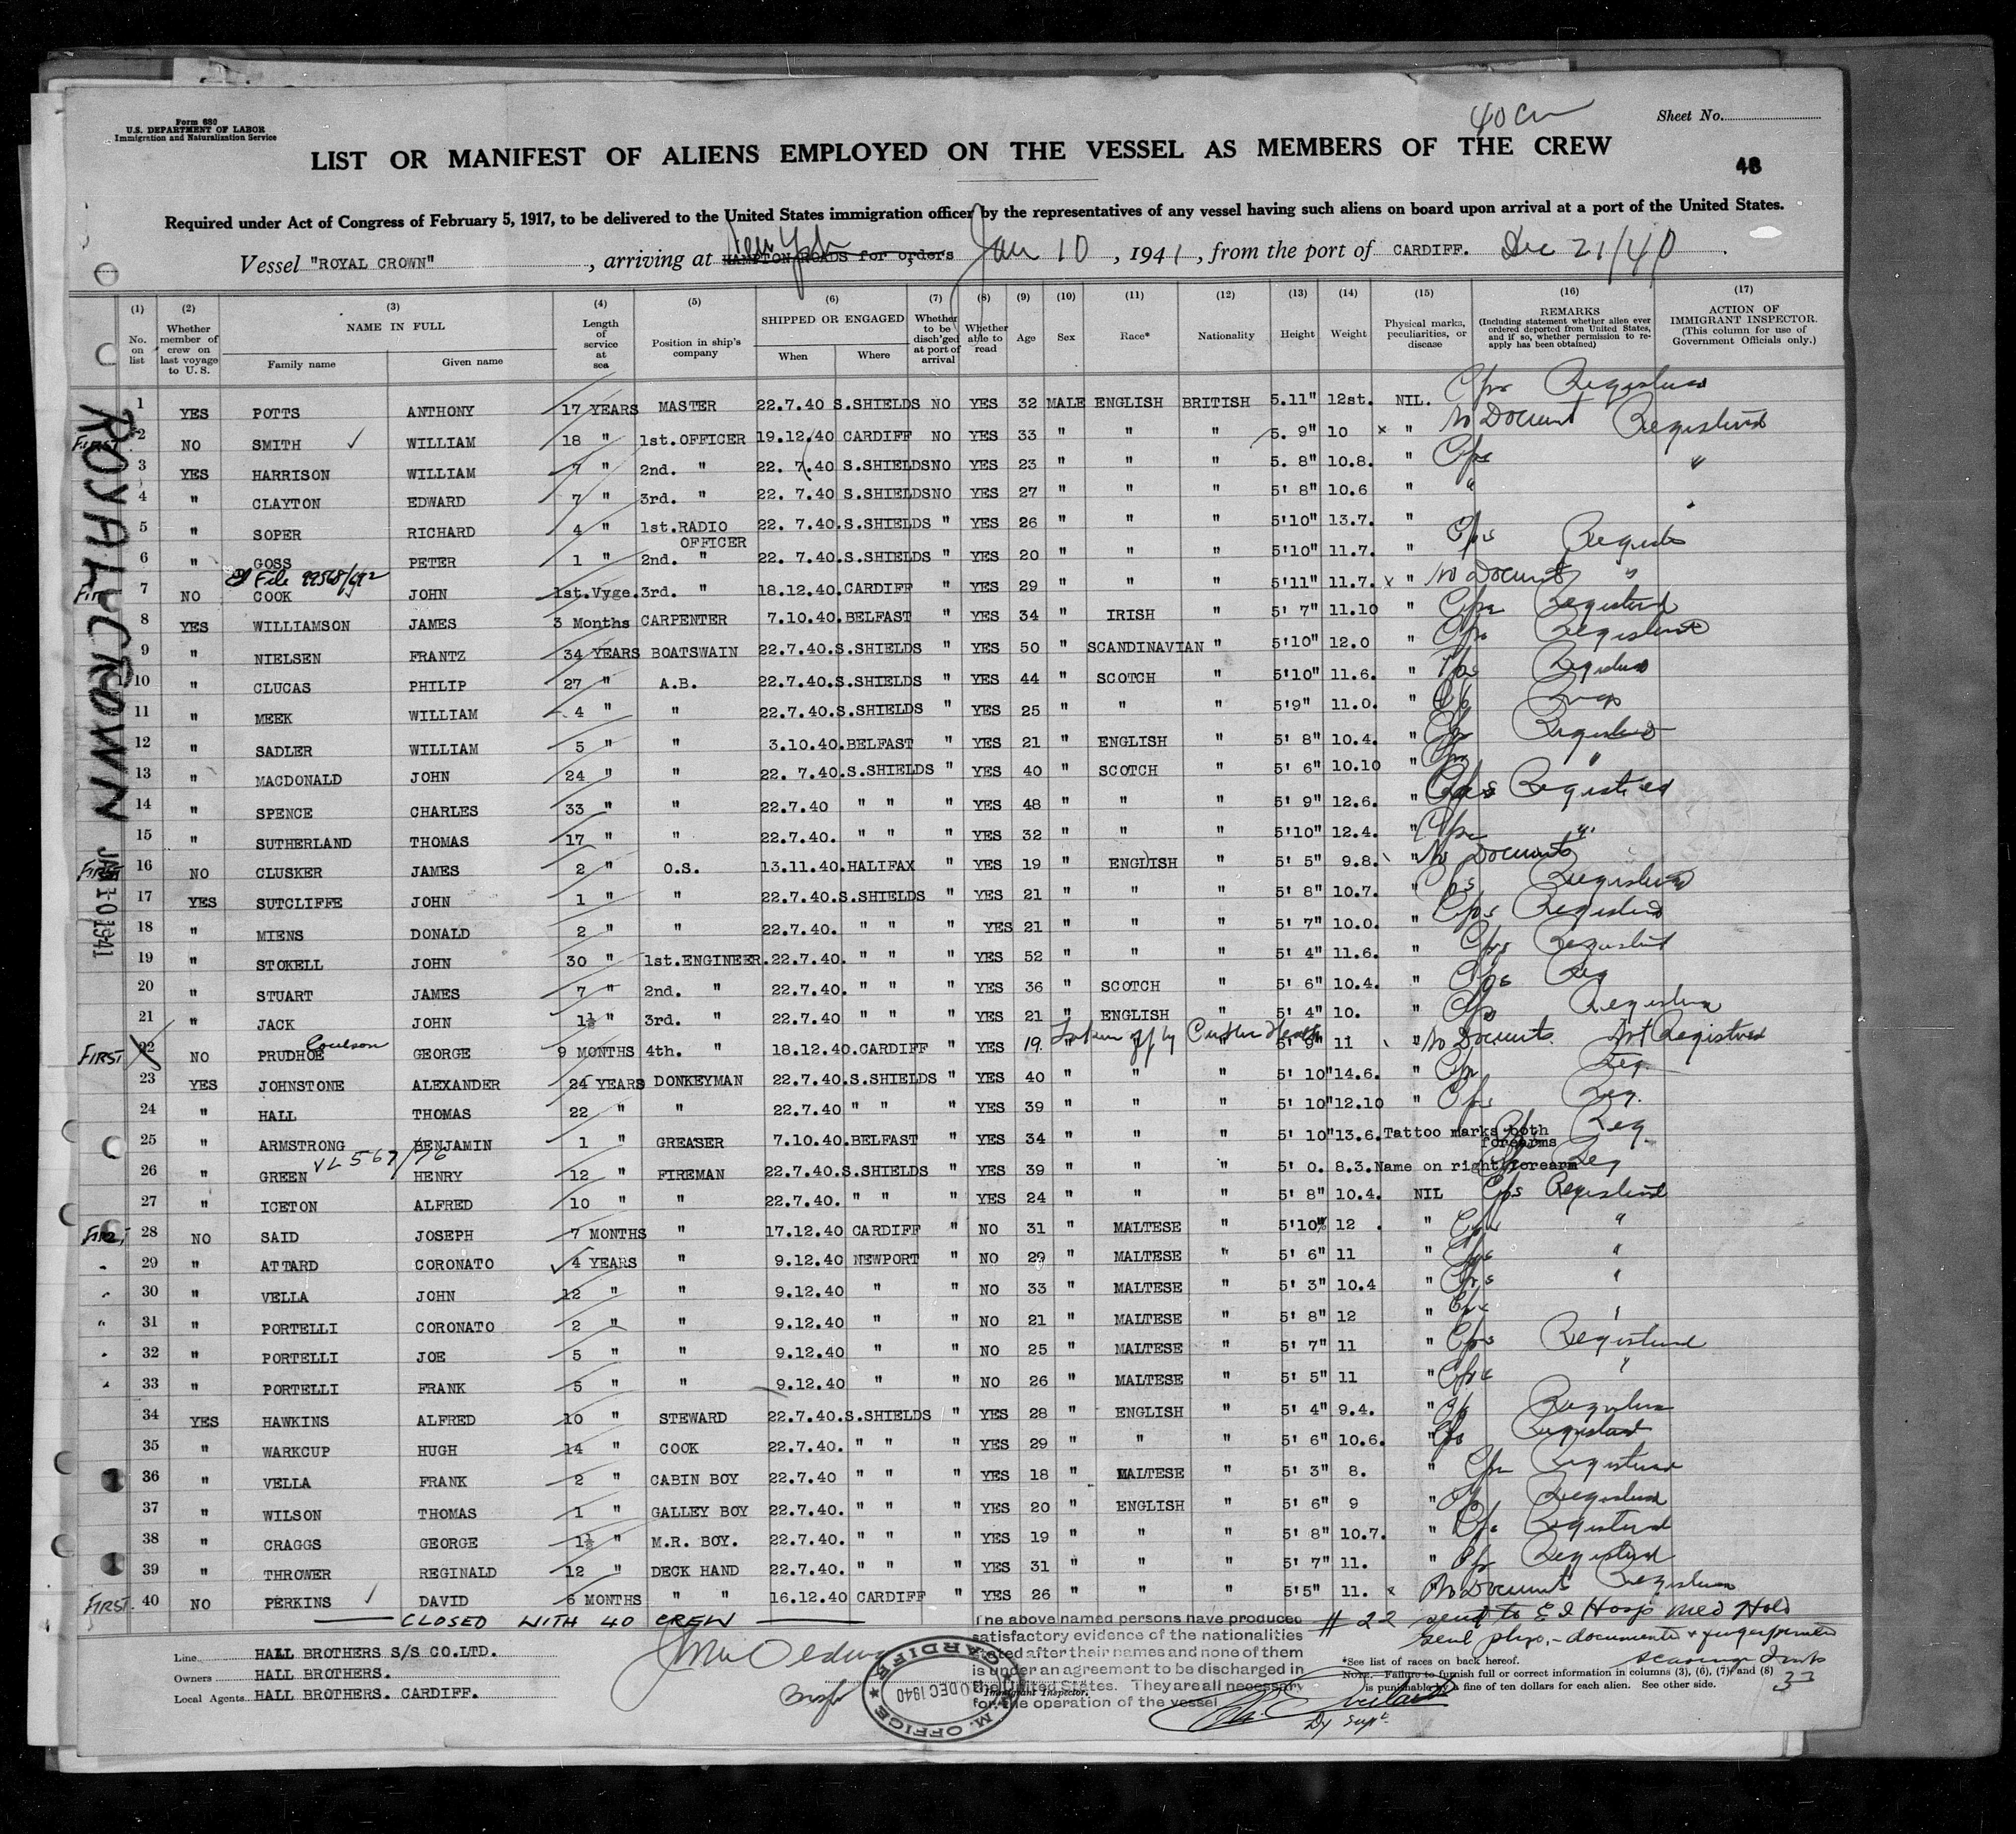 40
Form 680
U.S. DEPARTMENT OF LABOR
Immigration and Naturalization Service
Sheet No.
LIST OR MANIFEST OF ALIENS EMPLOYED ON THE VESSEL AS MEMBERS OF THE CREW
Required under Act of Congress of February 5, 1917, to be delivered to the United States immigration officer by the representatives of any vessel having such aliens on board upon arrival at a port of the United States.
Vessel "ROYAL CROWN", arriving at New York HAMPTON ROADS for orders Jan 10, 1941, from the port of CARDIFF. Dec 21/40
(1) (2) (3) (4) (5) (6) (7) (8) (9) (10) (11) (12) (13) (14) (15) (16) (17)
No. on list | Whether member of crew on last voyage to U.S. | NAME IN FULL Family name Given name | Length of service at sea | Position in ship's company | SHIPPED OR ENGAGED When Where | Whether to be disch'ged at port of arrival | Whether able to read | Age | Sex | Race* | Nationality | Height | Weight | Physical marks, peculiarities, or disease | REMARKS (Including statement whether alien ever ordered deported from United States, and if so, whether permission to re-apply has been obtained) | ACTION OF IMMIGRANT INSPECTOR. (This column for use of Government Officials only.)
ROYAL CROWN JAN 10 1941
1 YES POTTS ANTHONY 17 YEARS MASTER 22.7.40 S.SHIELDS NO YES 32 MALE ENGLISH BRITISH 5.11" 12st. NIL. Registered
FIRST 2 NO SMITH ✓ WILLIAM 18 " 1st.OFFICER 19.12.40 CARDIFF NO YES 33 " " " 5. 9" 10 x " No Document Registered
3 YES HARRISON WILLIAM 7 " 2nd. " 22. 7.40 S.SHIELDS NO YES 23 " " " 5. 8" 10.8. " "
4 " CLAYTON EDWARD 7 " 3rd. " 22. 7.40 S.SHIELDS NO YES 27 " " " 5' 8" 10.6 " "
5 " SOPER RICHARD 4 " 1st.RADIO OFFICER 22. 7.40.S.SHIELDS " YES 26 " " " 5'10" 13.7. "
6 " GOSS PETER 1 " 2nd. " 22. 7.40.S.SHIELDS " YES 20 " " " 5'10" 11.7. "
File 99568/692
7 NO COOK JOHN 1st.Vyge. 3rd. " 18.12.40.CARDIFF " YES 29 " " " 5'11" 11.7. x " No Documents "
8 YES WILLIAMSON JAMES 3 Months CARPENTER 7.10.40.BELFAST " YES 34 " IRISH " 5' 7" 11.10 " Registered
9 " NIELSEN FRANTZ 34 YEARS BOATSWAIN 22.7.40.S.SHIELDS " YES 50 " SCANDINAVIAN " 5'10" 12.0 " Registered
10 " CLUCAS PHILIP 27 " A.B. 22.7.40.S.SHIELDS " YES 44 " SCOTCH " 5'10" 11.6. " Registered
11 " MEEK WILLIAM 4 " " 22.7.40.S.SHIELDS " YES 25 " " " 5'9" 11.0. "
12 " SADLER WILLIAM 5 " " 3.10.40.BELFAST " YES 21 " ENGLISH " 5' 8" 10.4. " Registered
13 " MACDONALD JOHN 24 " " 22. 7.40.S.SHIELDS " YES 40 " SCOTCH " 5' 6" 10.10 " "
14 " SPENCE CHARLES 33 " " 22.7.40 " " " YES 48 " " " 5' 9" 12.6. " Registered
15 " SUTHERLAND THOMAS 17 " " 22.7.40. " " " YES 32 " " " 5'10" 12.4. " "
FIRST 16 NO CLUSKER JAMES 2 " O.S. 13.11.40.HALIFAX " YES 19 " ENGLISH " 5' 5" 9.8. " No Documents
17 YES SUTCLIFFE JOHN 1 " " 22.7.40.S.SHIELDS " YES 21 " " " 5' 8" 10.7. " Registered
18 " MIENS DONALD 2 " " 22.7.40. " " " YES 21 " " " 5' 7" 10.0. " Registered
19 " STOKELL JOHN 30 " 1st.ENGINEER. 22.7.40. " " " YES 52 " " " 5' 4" 11.6. " Registered
20 " STUART JAMES 7 " 2nd. " 22.7.40. " " " YES 36 " SCOTCH " 5' 6" 10.4. " Reg
21 " JACK JOHN 1½ " 3rd. " 22.7.40 " " " YES 21 " ENGLISH " 5' 4" 10. " Registered
FIRST 22 NO PRUDHOE Coulson GEORGE 9 MONTHS 4th. " 18.12.40.CARDIFF " YES 19. " Taken off by 5' 9" 11 " No Documents. Not Registered
23 YES JOHNSTONE ALEXANDER 24 YEARS DONKEYMAN 22.7.40.S.SHIELDS " YES 40 " " " 5' 10" 14.6. " Reg.
24 " HALL THOMAS 22 " " 22.7.40 " " " YES 39 " " " 5' 10" 12.10 " Reg.
25 " ARMSTRONG BENJAMIN 1 " GREASER 7.10.40.BELFAST " YES 34 " " " 5' 10" 13.6. Tattoo marks both forearms Reg.
VL 567/76
26 " GREEN HENRY 12 " FIREMAN 22.7.40.S.SHIELDS " YES 39 " " " 5' 0. 8.3. Name on right forearm Reg
27 " ICETON ALFRED 10 " " 22.7.40. " " " YES 24 " " " 5' 8" 10.4. NIL Registered
FIRST 28 NO SAID JOSEPH 7 MONTHS " 17.12.40 CARDIFF " NO 31 " MALTESE " 5'10½ 12 . " "
29 " ATTARD CORONATO 4 YEARS " 9.12.40 NEWPORT " NO 29 " MALTESE " 5' 6" 11 " "
30 " VELLA JOHN 12 " " 9.12.40 " " NO 33 " MALTESE " 5' 3" 10.4 " "
31 " PORTELLI CORONATO 2 " " 9.12.40 " " NO 21 " MALTESE " 5' 8" 12 " "
32 " PORTELLI JOE 5 " " 9.12.40 " " NO 25 " MALTESE " 5' 7" 11 " Registered
33 " PORTELLI FRANK 5 " " 9.12.40 " " NO 26 " MALTESE " 5' 5" 11 " "
34 YES HAWKINS ALFRED 10 " STEWARD 22.7.40.S.SHIELDS " YES 28 " ENGLISH " 5' 4" 9.4. " Registered
35 " WARKCUP HUGH 14 " COOK 22.7.40. " " " YES 29 " " " 5' 6" 10.6. " Registered
36 " VELLA FRANK 2 " CABIN BOY 22.7.40 " " " YES 18 " MALTESE " 5' 3" 8. " Registered
37 " WILSON THOMAS 1 " GALLEY BOY 22.7.40. " " " YES 20 " ENGLISH " 5' 6" 9 " Registered
38 " CRAGGS GEORGE 1½ " M.R. BOY. 22.7.40. " " " YES 19 " " " 5' 8" 10.7. " Registered
39 " THROWER REGINALD 12 " DECK HAND 22.7.40. " " " YES 31 " " " 5' 7" 11. " Registered
FIRST. 40 NO PERKINS ✓ DAVID 6 MONTHS " " 16.12.40 CARDIFF " YES 26 " " " 5'5" 11. x No Documents Registered
CLOSED WITH 40 CREW
The above named persons have produced
satisfactory evidence of the nationalities
stated after their names and none of them
is under an agreement to be discharged in
the United States. They are all necessary
for the operation of the vessel
# 22 sent to E I Hosp Med Hold
Line HALL BROTHERS S/S CO.LTD.
Owners HALL BROTHERS.
Local Agents HALL BROTHERS. CARDIFF.
Immigrant Inspector.
M. OFFICE CARDIFF DEC 1940
*See list of races on back hereof.
NOTE.—Failure to furnish full or correct information in columns (3), (6), (7) and (8)
is punishable by a fine of ten dollars for each alien. See other side.
33